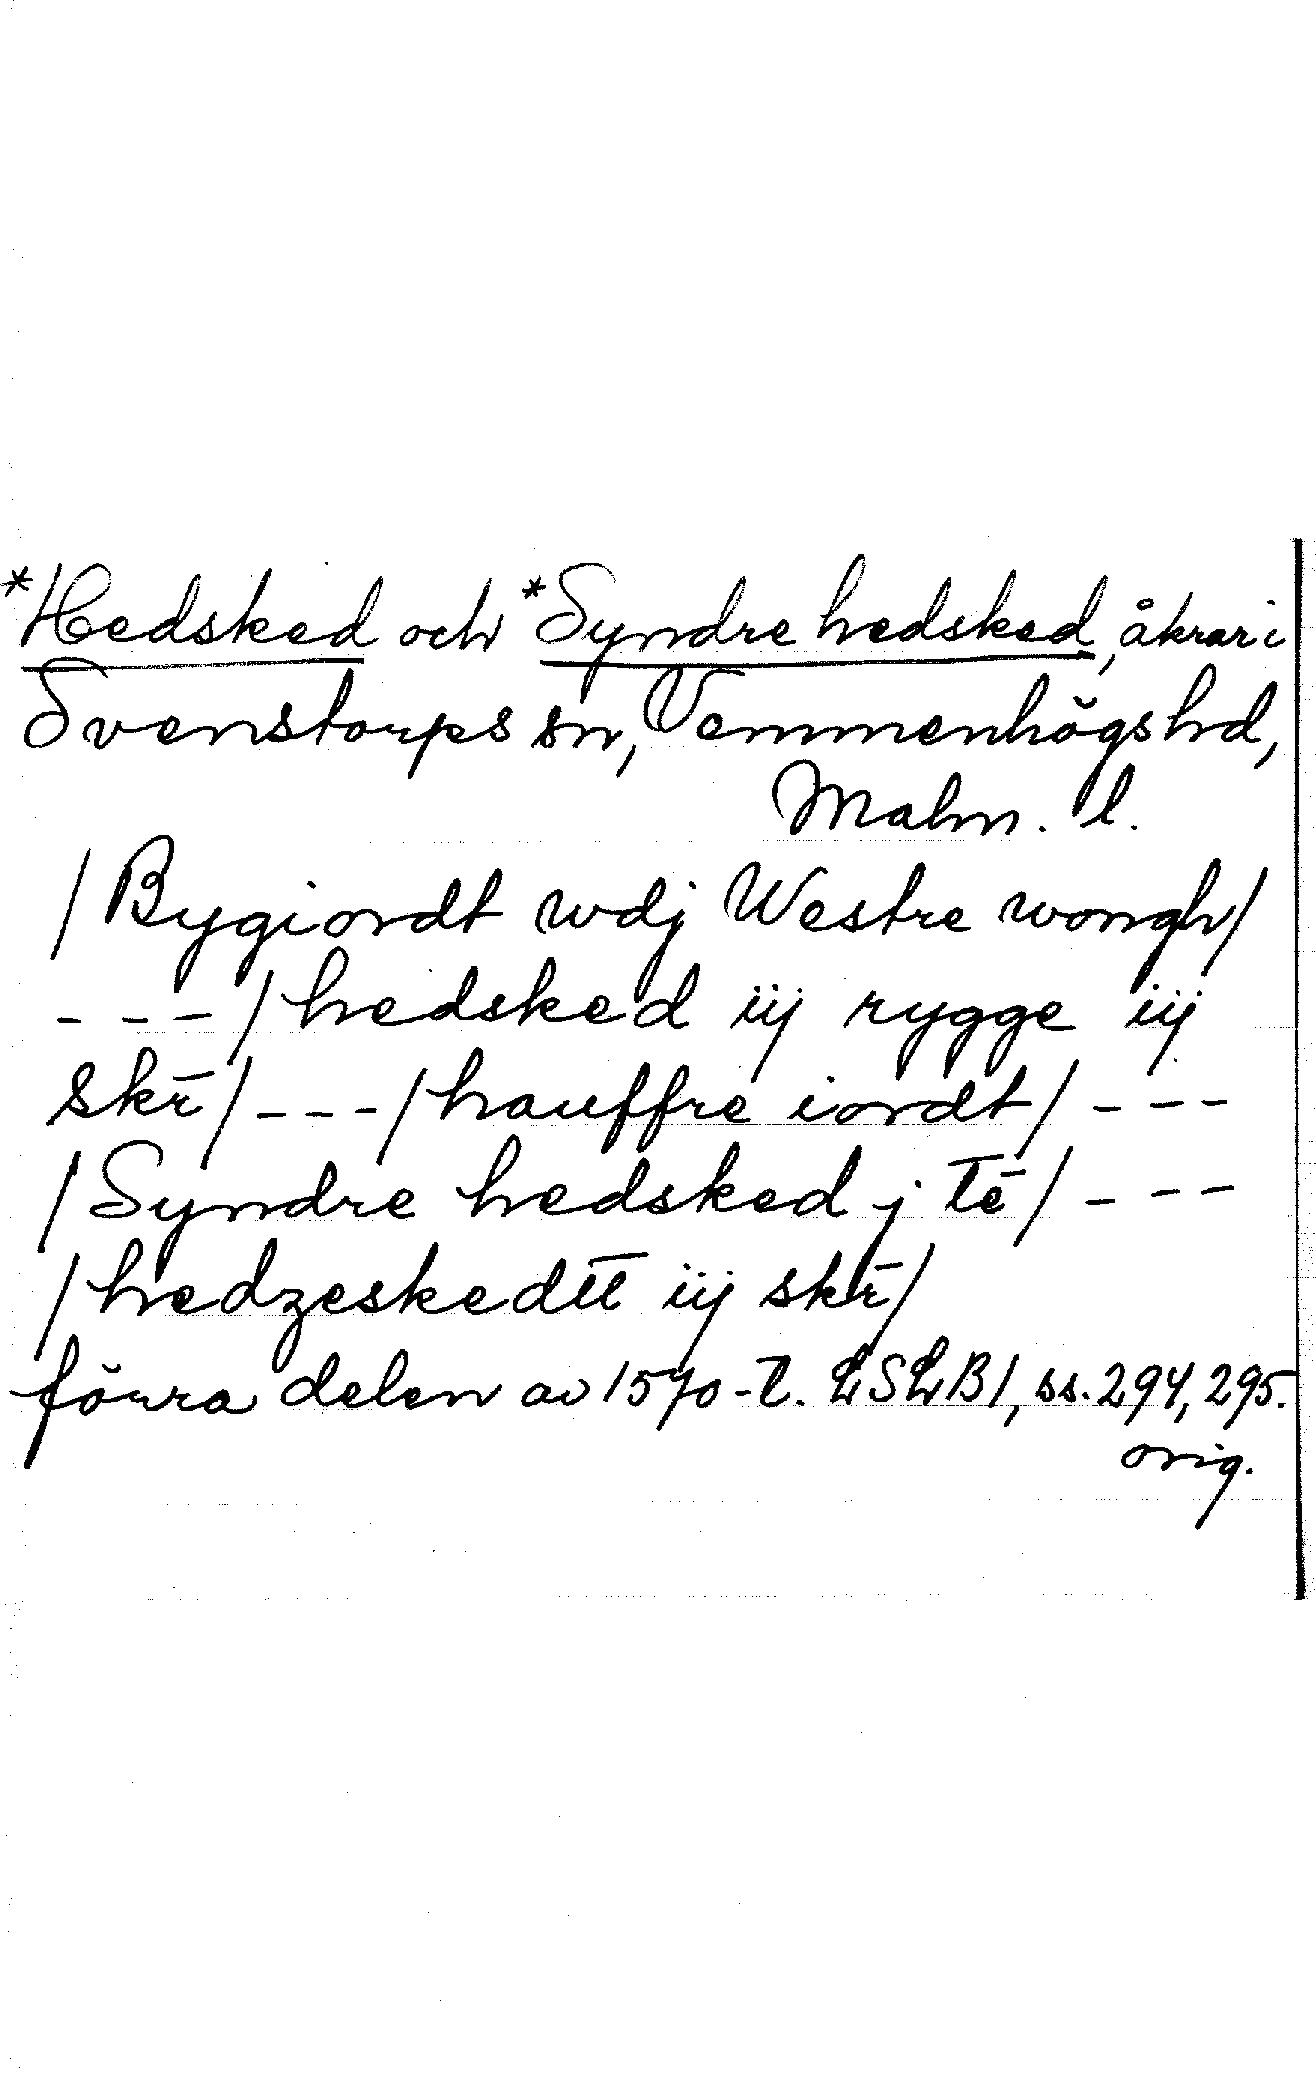 *Hedsked och *Syndre hedsked, åkrar i
Svenstorps sn, Vemmenhögs hd,
Malm. l.
/Bygiordt wdj Westre wongh/
---/hedsked iij rygge iij
skr̄/---/hauffre iordt/---
/Syndre hedsked j tē/---
/hedzeskedīt iij skr̄/
förra delen av 1570-t. LSLB1, ss. 294, 295.
orig.